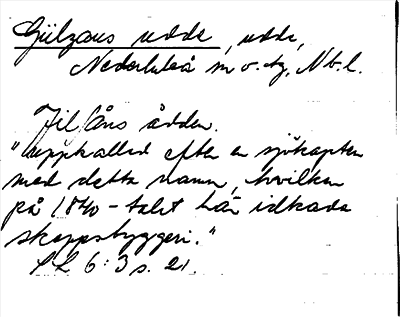 Gülzaus udde, udde,
Nederluleå sn o. tg, Nb.l.
Jil/åns ådden.
"uppkallad efter en sjökapten
med detta namn, hvilken
på 1840-talet här idkade
skeppsbyggeri."
SL 6:3 s. 21.